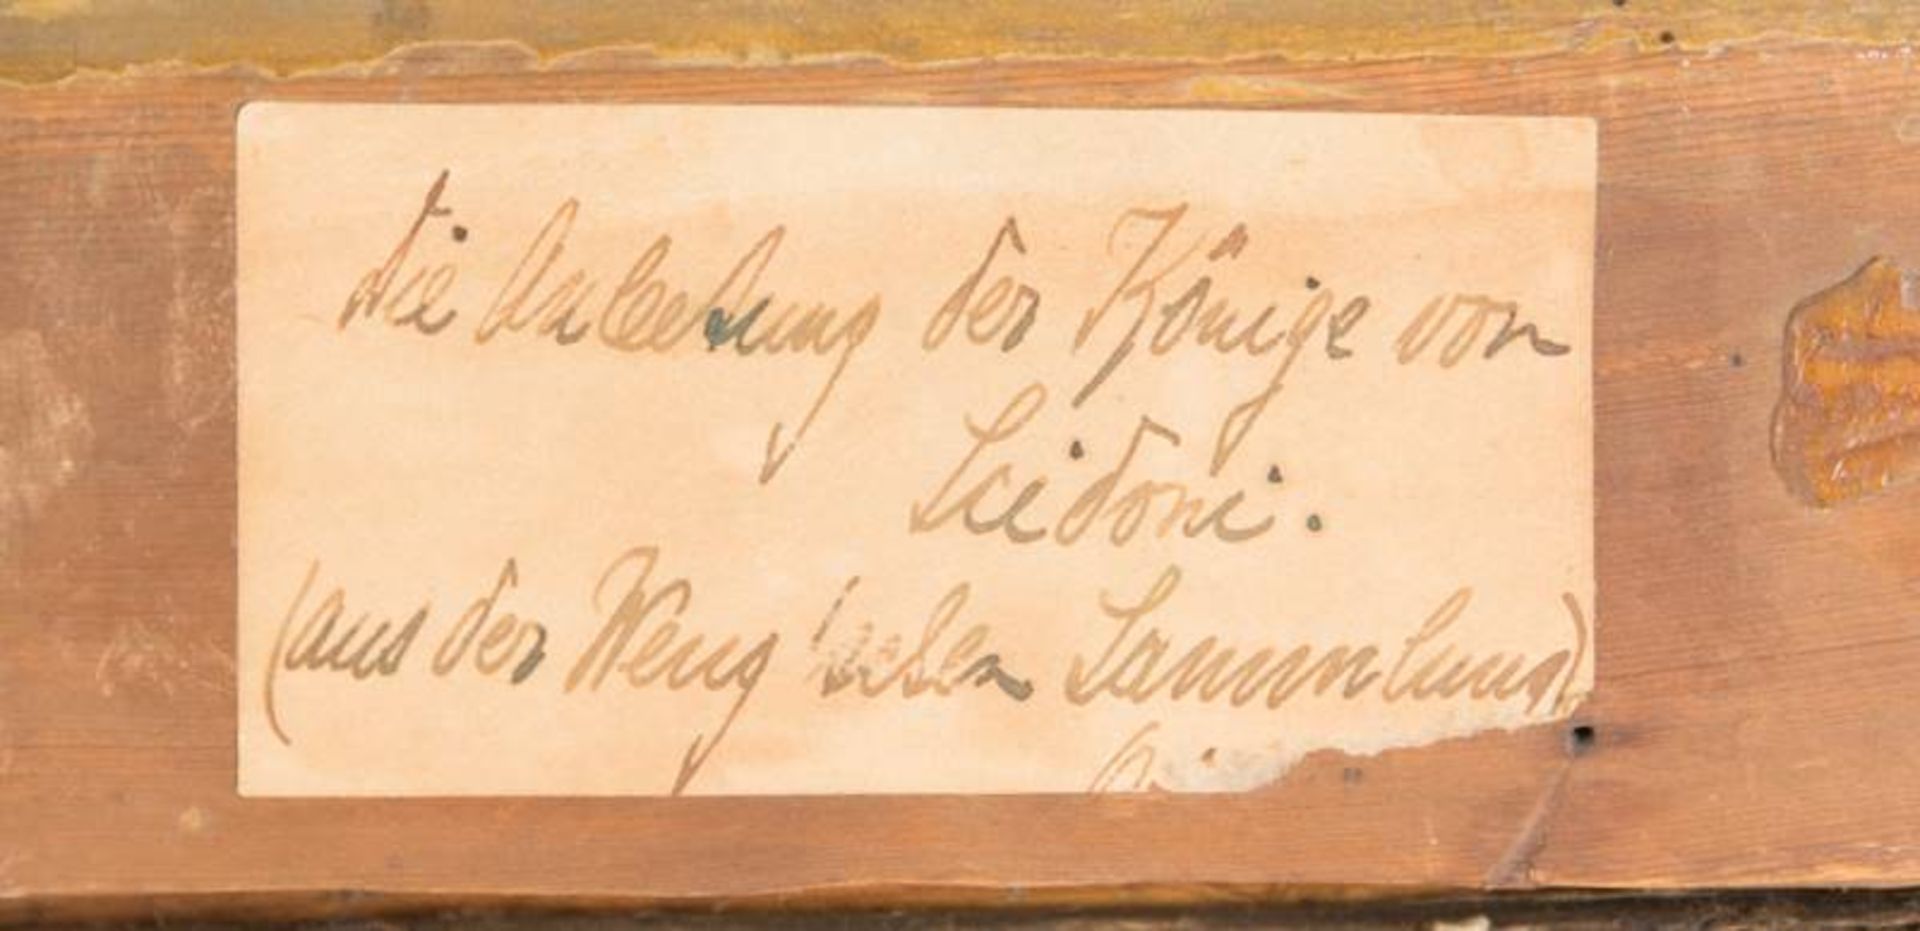 die Anbetung der Könige von
Scidoni.
(aus der Weng Sammlung)